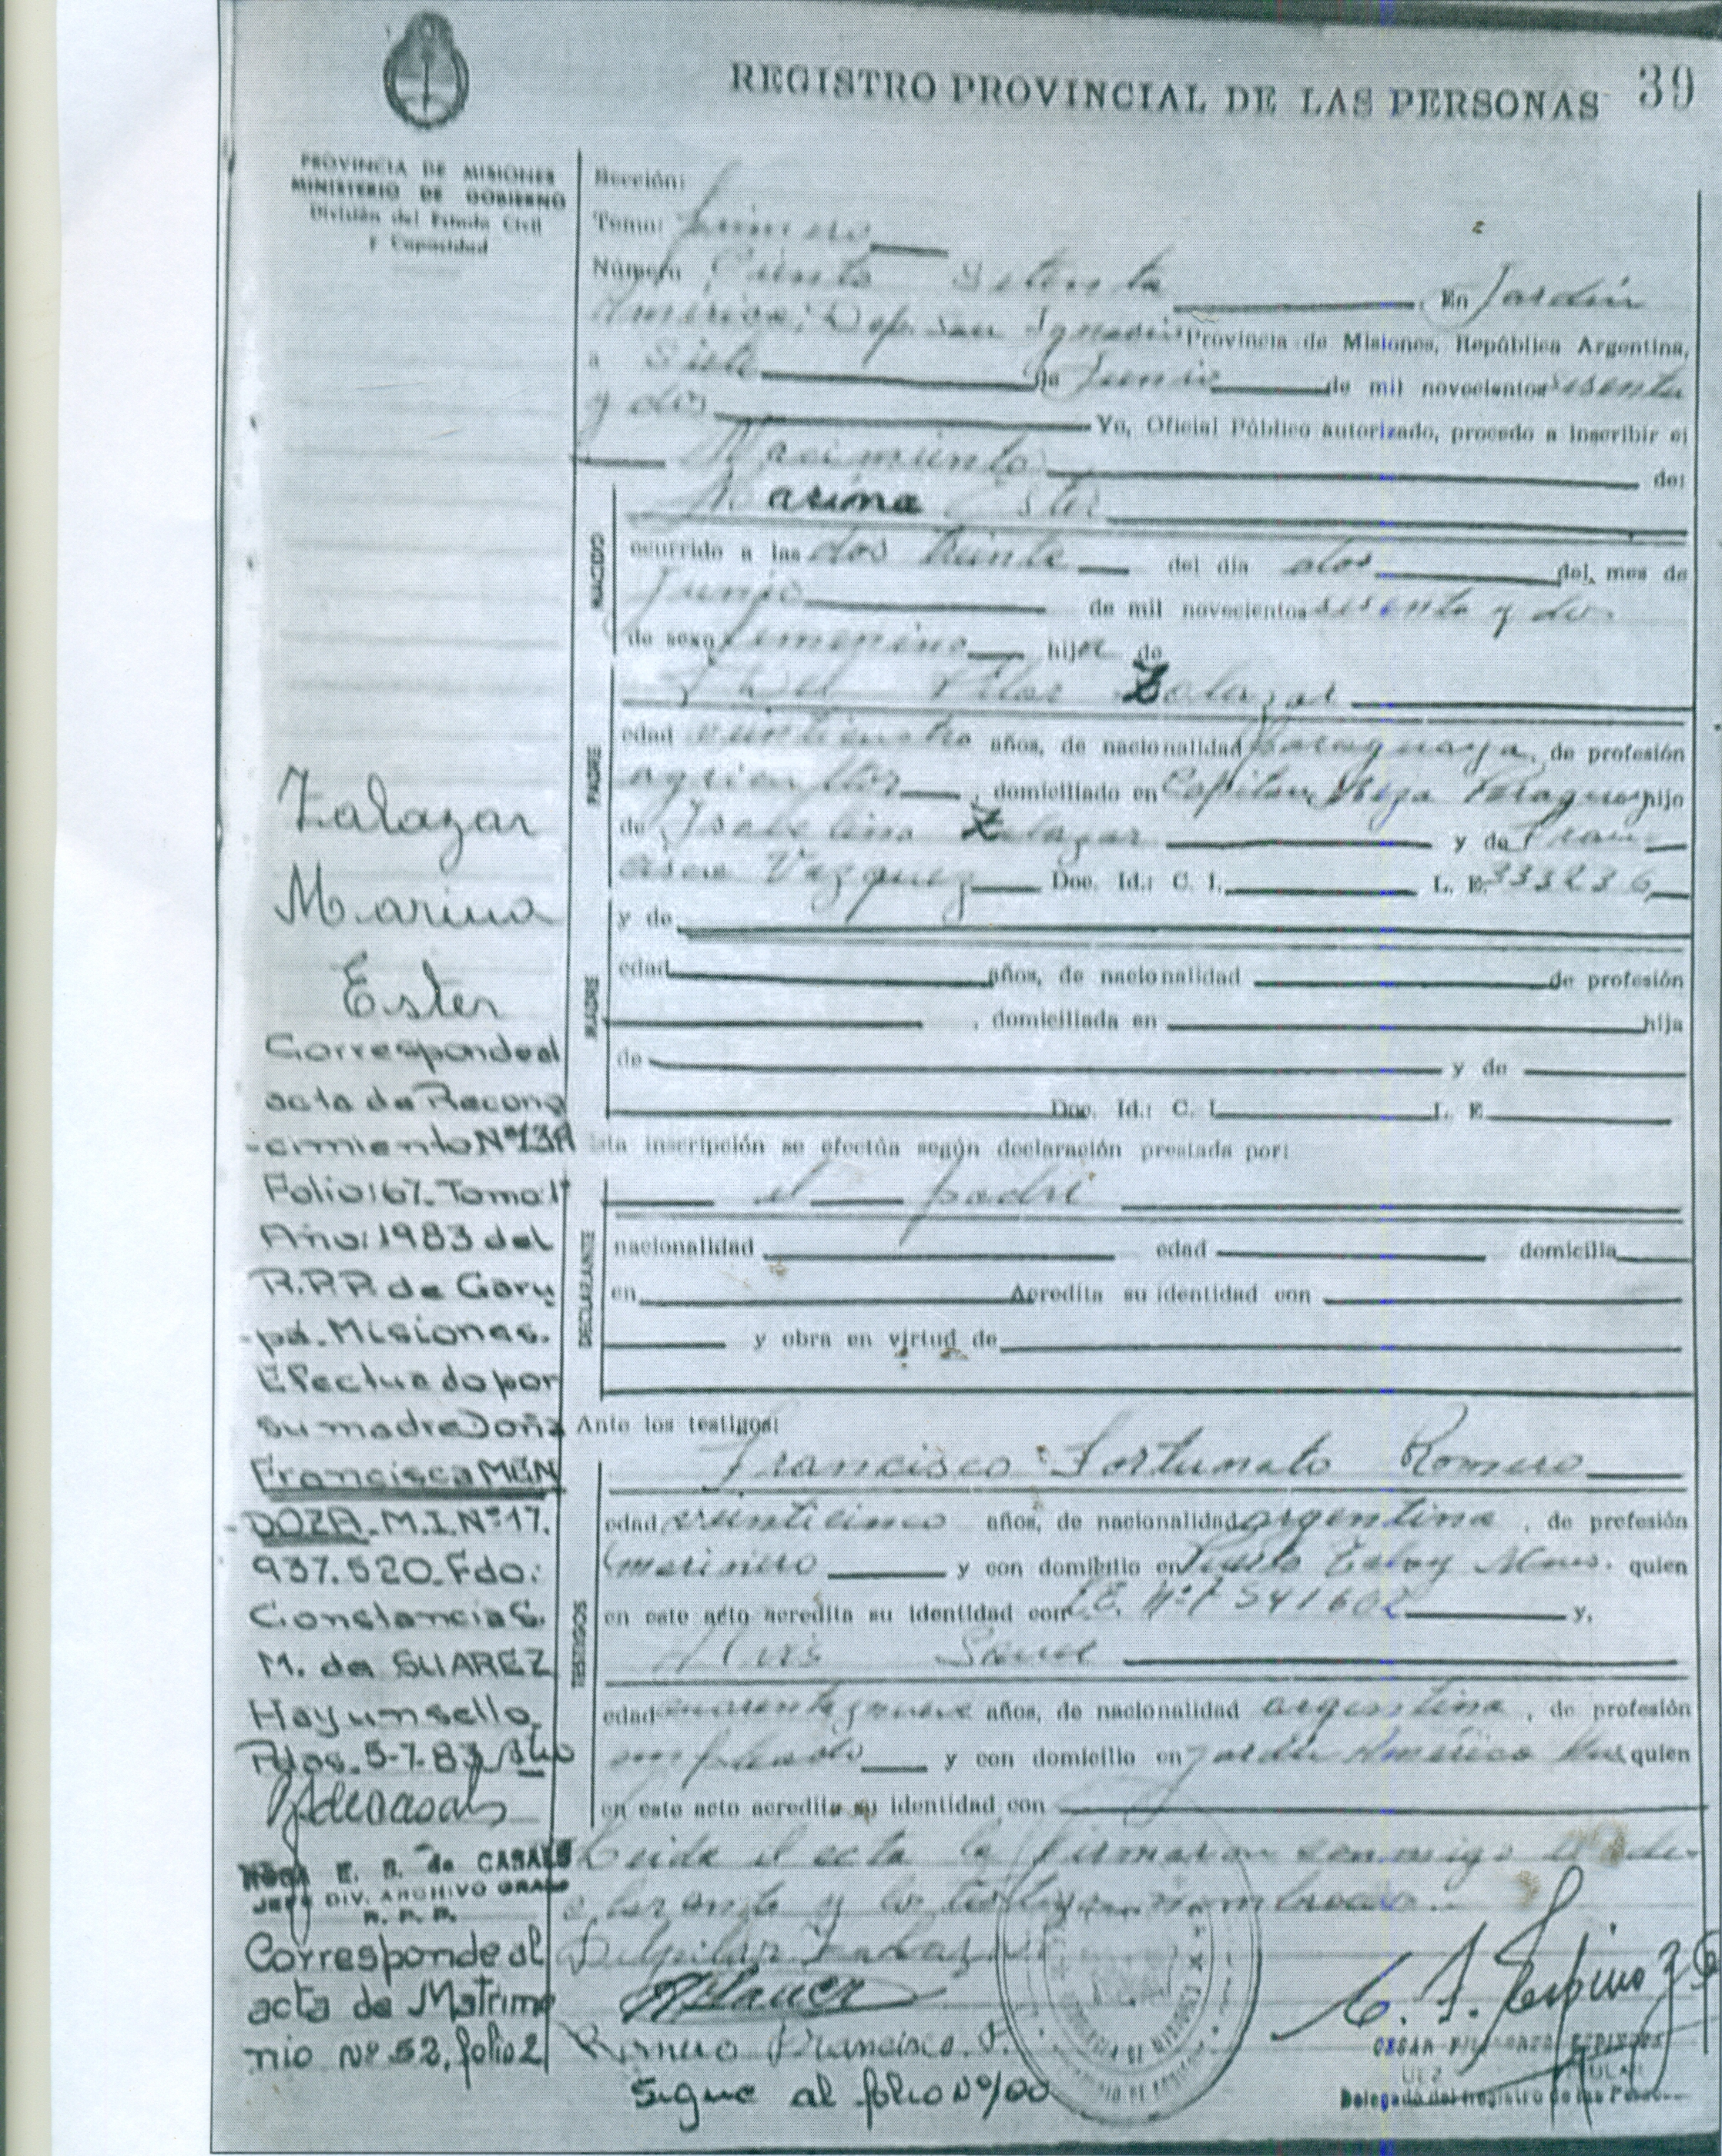 REGISTRO PROVINCIAL DE LAS PERSONAS 39
PROVINCIA DE MISIONES
MINISTERIO DE GOBIERNO
División del Estado Civil
y Capacidad
Sección:
Tomo: primero
Número Ciento Setenta En Jardín
América, Dep. San Ignacio Provincia de Misiones, República Argentina,
a Siete de Junio de mil novecientos sesenta
y dos Yo, Oficial Público autorizado, procedo a inscribir el
Nacimiento de:
Marina Ester
ocurrido a las dos treinta del día dos del mes de
Junio de mil novecientos sesenta y dos
de sexo femenino hija de
Del Pilar Zalazar
PADRE
edad veinticuatro años, de nacionalidad Paraguaya, de profesión
agricultor, domiciliado en Capitan Meza Paraguay hijo
de Isabelino Zalazar y de Fran
cisca Vazquez Doc. Id.: C. I. L. E. 333236
y de
MADRE
edad años, de nacionalidad de profesión
, domiciliada en hija
de y de
Doc. Id.: C. I. L. E.
Esta inscripción se efectúa según declaración prestada por:
el padre
DECLARANTE
nacionalidad edad domicilia
en Acredita su identidad con
y obra en virtud de
Ante los testigos:
Francisco Fortunato Romero
TESTIGOS
edad veinticinco años, de nacionalidad argentina, de profesión
marinero y con domicilio en Puerto Mnes. quien
en este acto acredita su identidad con L.E. Nº 7541602 y,
edad cuarenta y nueve años, de nacionalidad argentina, de profesión
empleado y con domicilio en Jardín América quien
en este acto acredita su identidad con
Leida el acta la firmaron conmigo el de-
clarante y los testigos nombrados.
Delpilar Zalazar
Romero Francisco. F.
Sigue al folio Nº 100
Delegado del Registro de las Personas
Zalazar
Marina
Ester
Corresponde al
acta de Recono
-cimiento Nº 13A
Folio: 67. Tomo: 1º
Año: 1983 del
R.P.P. de Garu
-pá. Misiones.
Efectuado por
su madre Doña
Francisca MEN
-DOZA. M.I. Nº 17.
937.520. Fdo:
Constancia G.
M. de SUAREZ
Hay un sello.
Pdas. 5-7-83
E. S. de CASALS
JEFE DIV. ARCHIVO GRAL
R. P. P.
Corresponde al
acta de Matrimo
nio Nº 52, folio 2